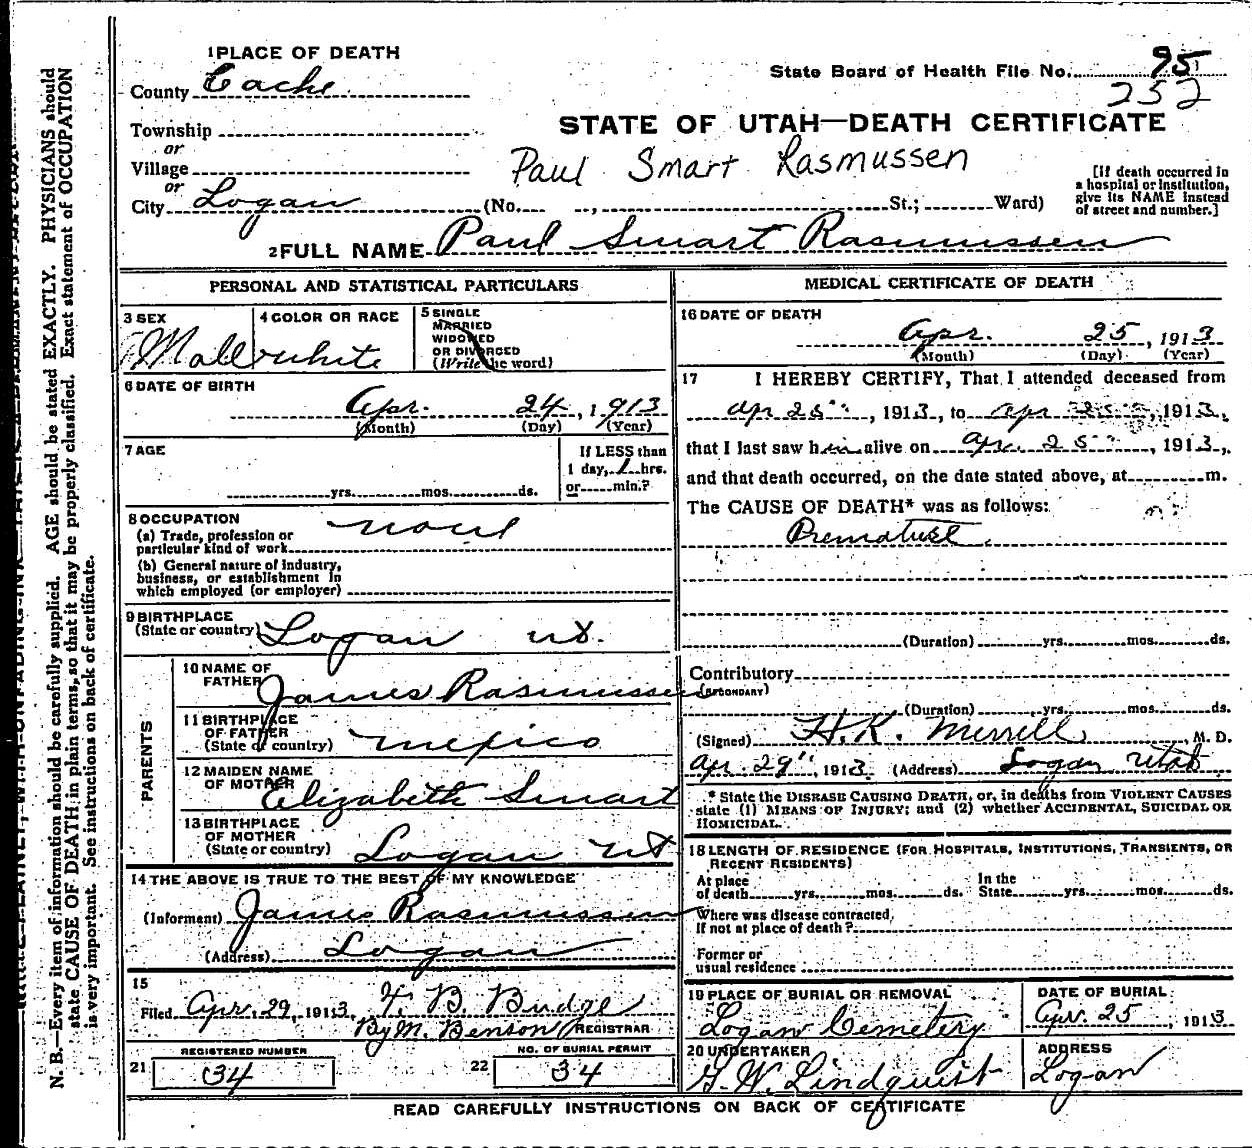 1 PLACE OF DEATH
County Cache
State Board of Health File No. 95
252
Township
or
Village
or
City Logan (No. , St.; Ward)
STATE OF UTAH—DEATH CERTIFICATE
Paul Smart Rasmussen
[If death occurred in
a hospital or institution,
give its NAME instead
of street and number.]
2 FULL NAME Paul Smart Rasmussen
PERSONAL AND STATISTICAL PARTICULARS
3 SEX
Male
4 COLOR OR RACE
white
5 SINGLE
MARRIED
WIDOWED
OR DIVORCED
(Write the word)
6 DATE OF BIRTH
Apr. 24, 1913
(Month) (Day) (Year)
7 AGE
yrs. mos. ds.
If LESS than
1 day, 1 hrs.
or min.?
8 OCCUPATION
(a) Trade, profession or
particular kind of work
none
(b) General nature of industry,
business, or establishment in
which employed (or employer)
9 BIRTHPLACE
(State or country) Logan ut.
PARENTS
10 NAME OF
FATHER James Rasmussen
11 BIRTHPLACE
OF FATHER
(State or country) mexico
12 MAIDEN NAME
OF MOTHER Elizabeth Smart
13 BIRTHPLACE
OF MOTHER
(State or country) Logan ut
14 THE ABOVE IS TRUE TO THE BEST OF MY KNOWLEDGE
(Informant) James Rasmussen
(Address) Logan
15
Filed Apr. 29, 1913 F. B. Budge
By M. Benson REGISTRAR
REGISTERED NUMBER
21 34
NO. OF BURIAL PERMIT
22 34
MEDICAL CERTIFICATE OF DEATH
16 DATE OF DEATH
Apr. 25, 1913
(Month) (Day) (Year)
17 I HEREBY CERTIFY, That I attended deceased from
apr 25", 1913, to apr 25, 1913,
that I last saw him alive on apr. 25", 1913,
and that death occurred, on the date stated above, at m.
The CAUSE OF DEATH* was as follows:
(Duration) yrs. mos. ds.
Contributory
(SECONDARY)
(Duration) yrs. mos. ds.
(Signed) H.K. Merrill, M. D.
Apr. 29", 1913. (Address) Logan Utah
* State the DISEASE CAUSING DEATH, or, in deaths from VIOLENT CAUSES
state (1) MEANS OF INJURY; and (2) whether ACCIDENTAL, SUICIDAL OR
HOMICIDAL.
18 LENGTH OF RESIDENCE (FOR HOSPITALS, INSTITUTIONS, TRANSIENTS, OR
RECENT RESIDENTS)
At place
of death yrs. mos. ds.
In the
State yrs. mos. ds.
Where was disease contracted,
If not at place of death?
Former or
usual residence
19 PLACE OF BURIAL OR REMOVAL
Logan Cemetery
DATE OF BURIAL
Apr. 25, 1913
20 UNDERTAKER
G. W. Lindquist
ADDRESS
Logan
READ CAREFULLY INSTRUCTIONS ON BACK OF CERTIFICATE
N. B.—Every item of information should be carefully supplied. AGE should be stated EXACTLY. PHYSICIANS should
state CAUSE OF DEATH in plain terms, so that it may be properly classified. Exact statement of OCCUPATION
is very important. See instructions on back of certificate.